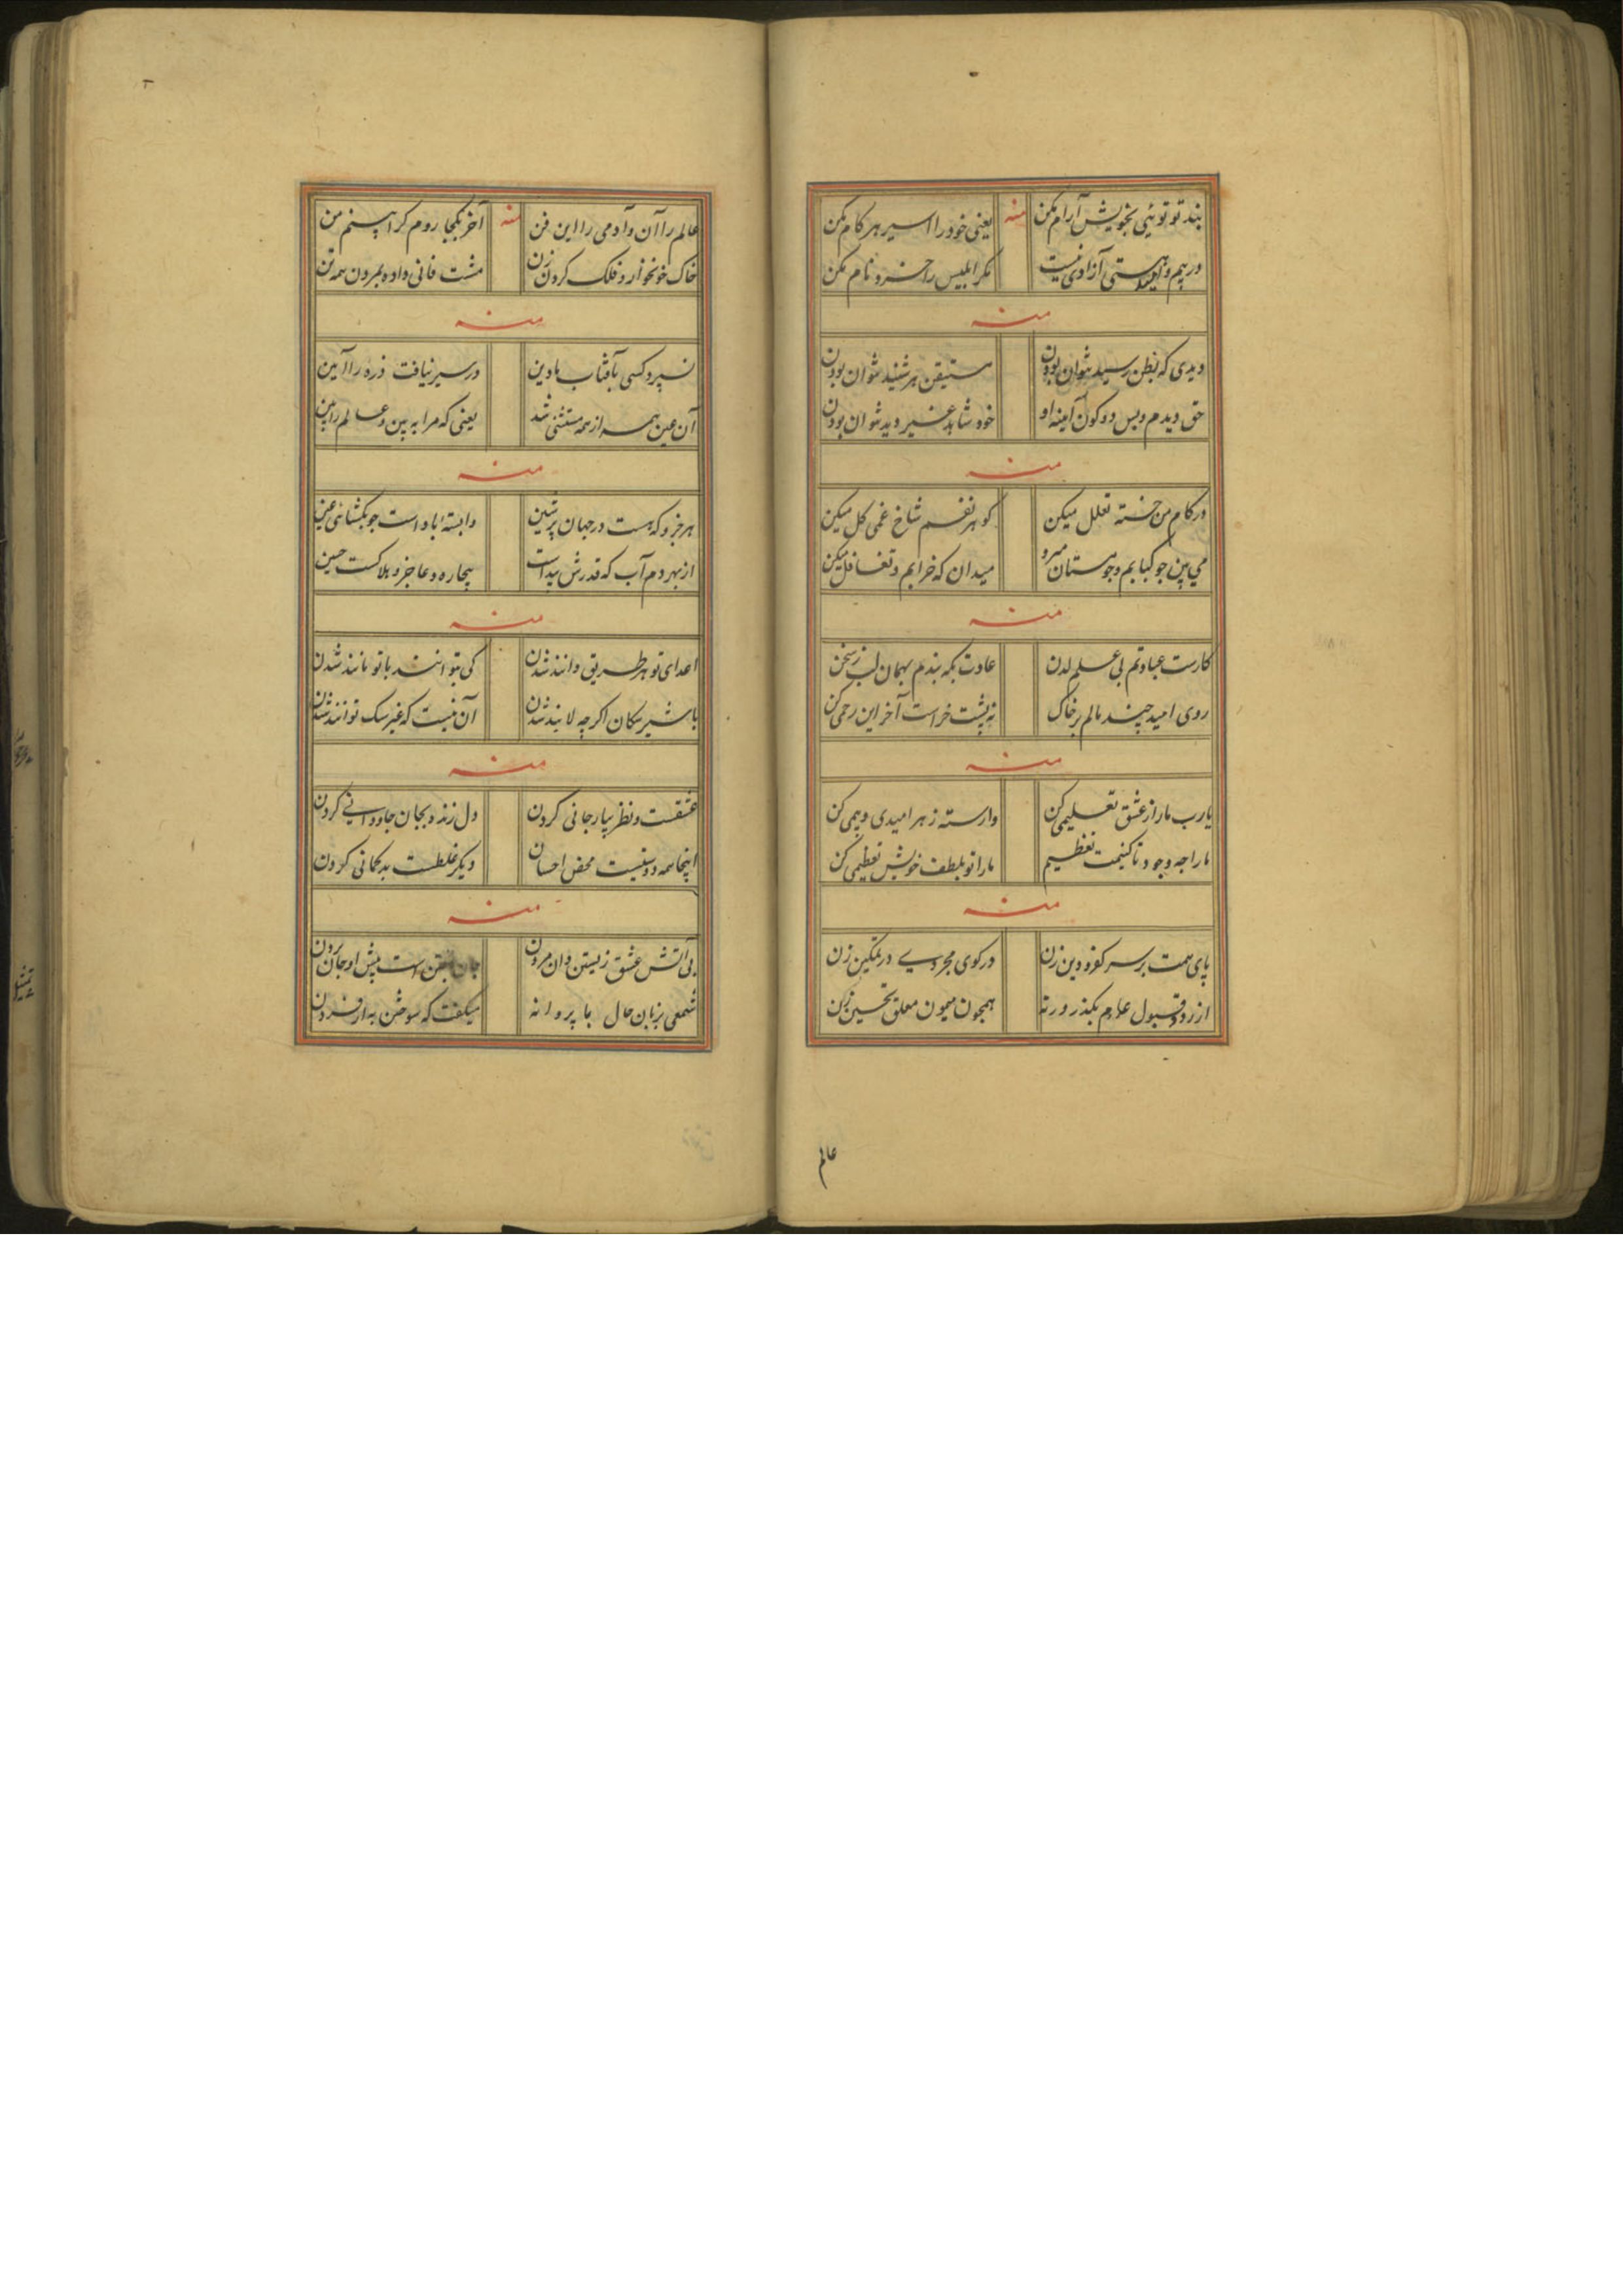 بند تو توئی بخویش آرام مکن منه یعنی خود را اسیر هر کام مکن
در بیم و امید هستی آزادی نیست مکر ابلیس را خرد نام مکن
منه
دیدی که بظن رسید نتوان بودن مستیقن هر شنید نتوان بودن
حق دیدم و بس دو کون آینه او خود شاهد غیر دید نتوان بودن
منه
در کام من خسته تعلل میکن کو هر نفسم شاخ غمی کل میکن
می بین جو کبابم و جو مستان میرو میدان که خرابم و تغافل میکن
منه
کارست عبادتم بی علم لدن عادت بکه بندم بهمان لب ز سخن
روی امید چند مالم بر خاک نه پشت خراست آخر این رحمی کن
منه
یارب ما را ز عشق تعلیمی کن وارسته ز هر امیدی و بیمی کن
ما را چه وجود تا کنیمت تعظیم ما را تو بلطف خویش تعظیمی کن
منه
پای همت بر سر کفر و دین زن در کوی مجردی در تمکین زن
از رد و قبول عام بکذر ورنه همجون میمون معلق تحسین زن
عالم
عالم را آن و آدمی را این فن منه آخر بکجا روم کرا بینم من
خاک خونخوار و فلک کردن زن مشت فانی داده بمردن همه تن
منه
نسپرد کسی بآفتاب ما دین در سیر نیافت ذره را آیین
آن عین همه از همه مستثنی شد یعنی که مرا به بین و عالم را بین
منه
هر جزو که هست در جهان پر شین وابسته باد است جو بکشائی عین
از بهر دم آب که قدرش پیداست بیچاره و عاجز و هلاکست حسین
منه
اعدای تو هر طریق دانند شدن کی بتوانند با تو مانند شدن
با شیر سکان اکرچه لایند شدن آن نیست که غیر سک توانند شدن
منه
عشقست و نظر بیار جانی کردن دل زنده بجان جاودانی کردن
اینجا همه دوستیست محض احسان دیکر غلطست بدکمانی کردن
منه
بی آتش عشق زیستن دان مردن جان باختن است پیش او جان بردن
شمعی بزبان حال با پروانه میکفت که سوختن به از افسردن